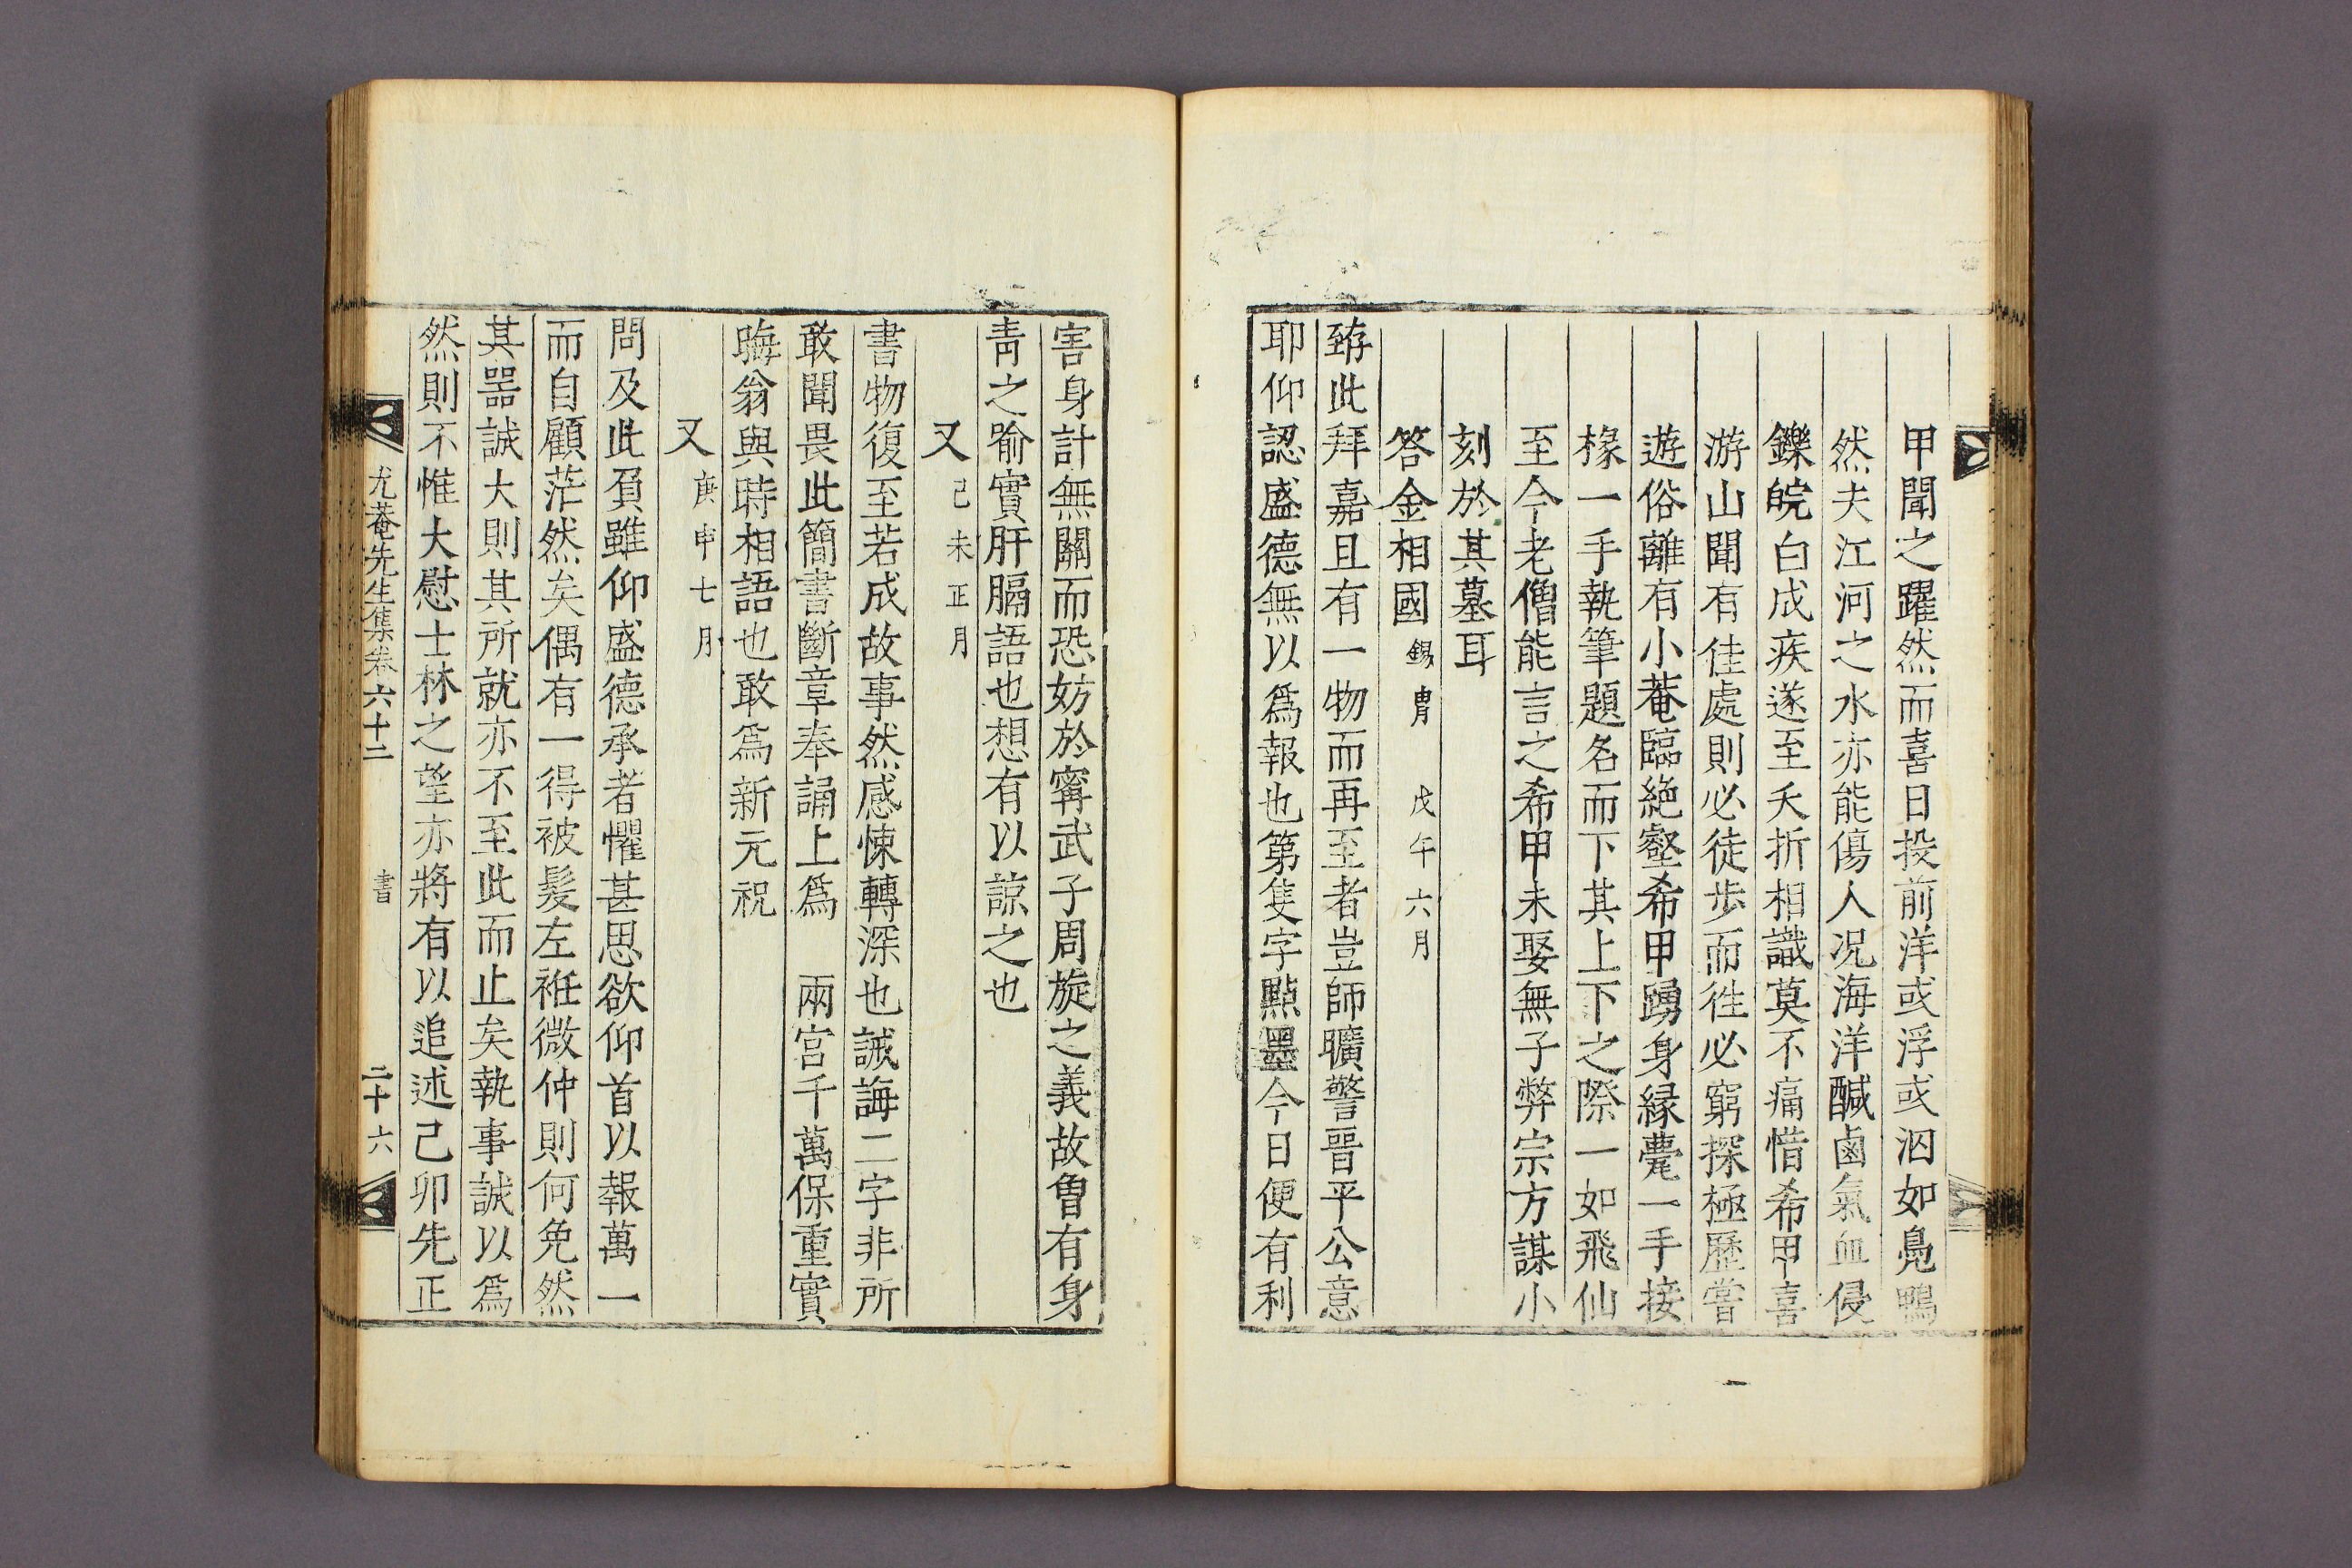 甲聞之躍然而喜日投前洋或浮或泅如鳧鴨
然夫江河之水亦能傷人况海洋醎鹵氣血侵
鑠皖白成疾遂至夭折相識莫不痛惜希甲喜
游山聞有佳處則必徒步而徃必窮探極歷嘗
遊俗離有小菴臨絶壑希甲踴身緣甍一手接
椽一手執筆題名而下其上下之際一如飛仙
至今老僧能言之希甲未娶無子弊宗方謀小
刻於其墓耳
答金相國 錫胄 戊午六月
臶此拜嘉且有一物而再至者豈師曠警晋平公意
耶仰認盛德無以爲報也第隻字點墨今日便有利
害身計無關而恐妨於甯武子周旋之義故曾有身
靑之喩實肝膈語也想有以諒之也
又 己未正月
書物復至若成故事然感悚轉深也誠誨二字非所
敢聞畏此簡書斷章奉誦上爲 兩宮千萬保重實
晦翁與時相語也敢爲新元祝
又 庚申七月
問及此負雖仰盛德承者懼甚思欲仰首以報萬一
而自顧茫然矣偶有一得被髮左袵微仲則何免然
其噐誠大則其所就亦不至此而止矣執事誠以爲
然則不惟大慰士林之望亦將有以追述己卯先正
尤菴先生集卷六十二 書 二十六